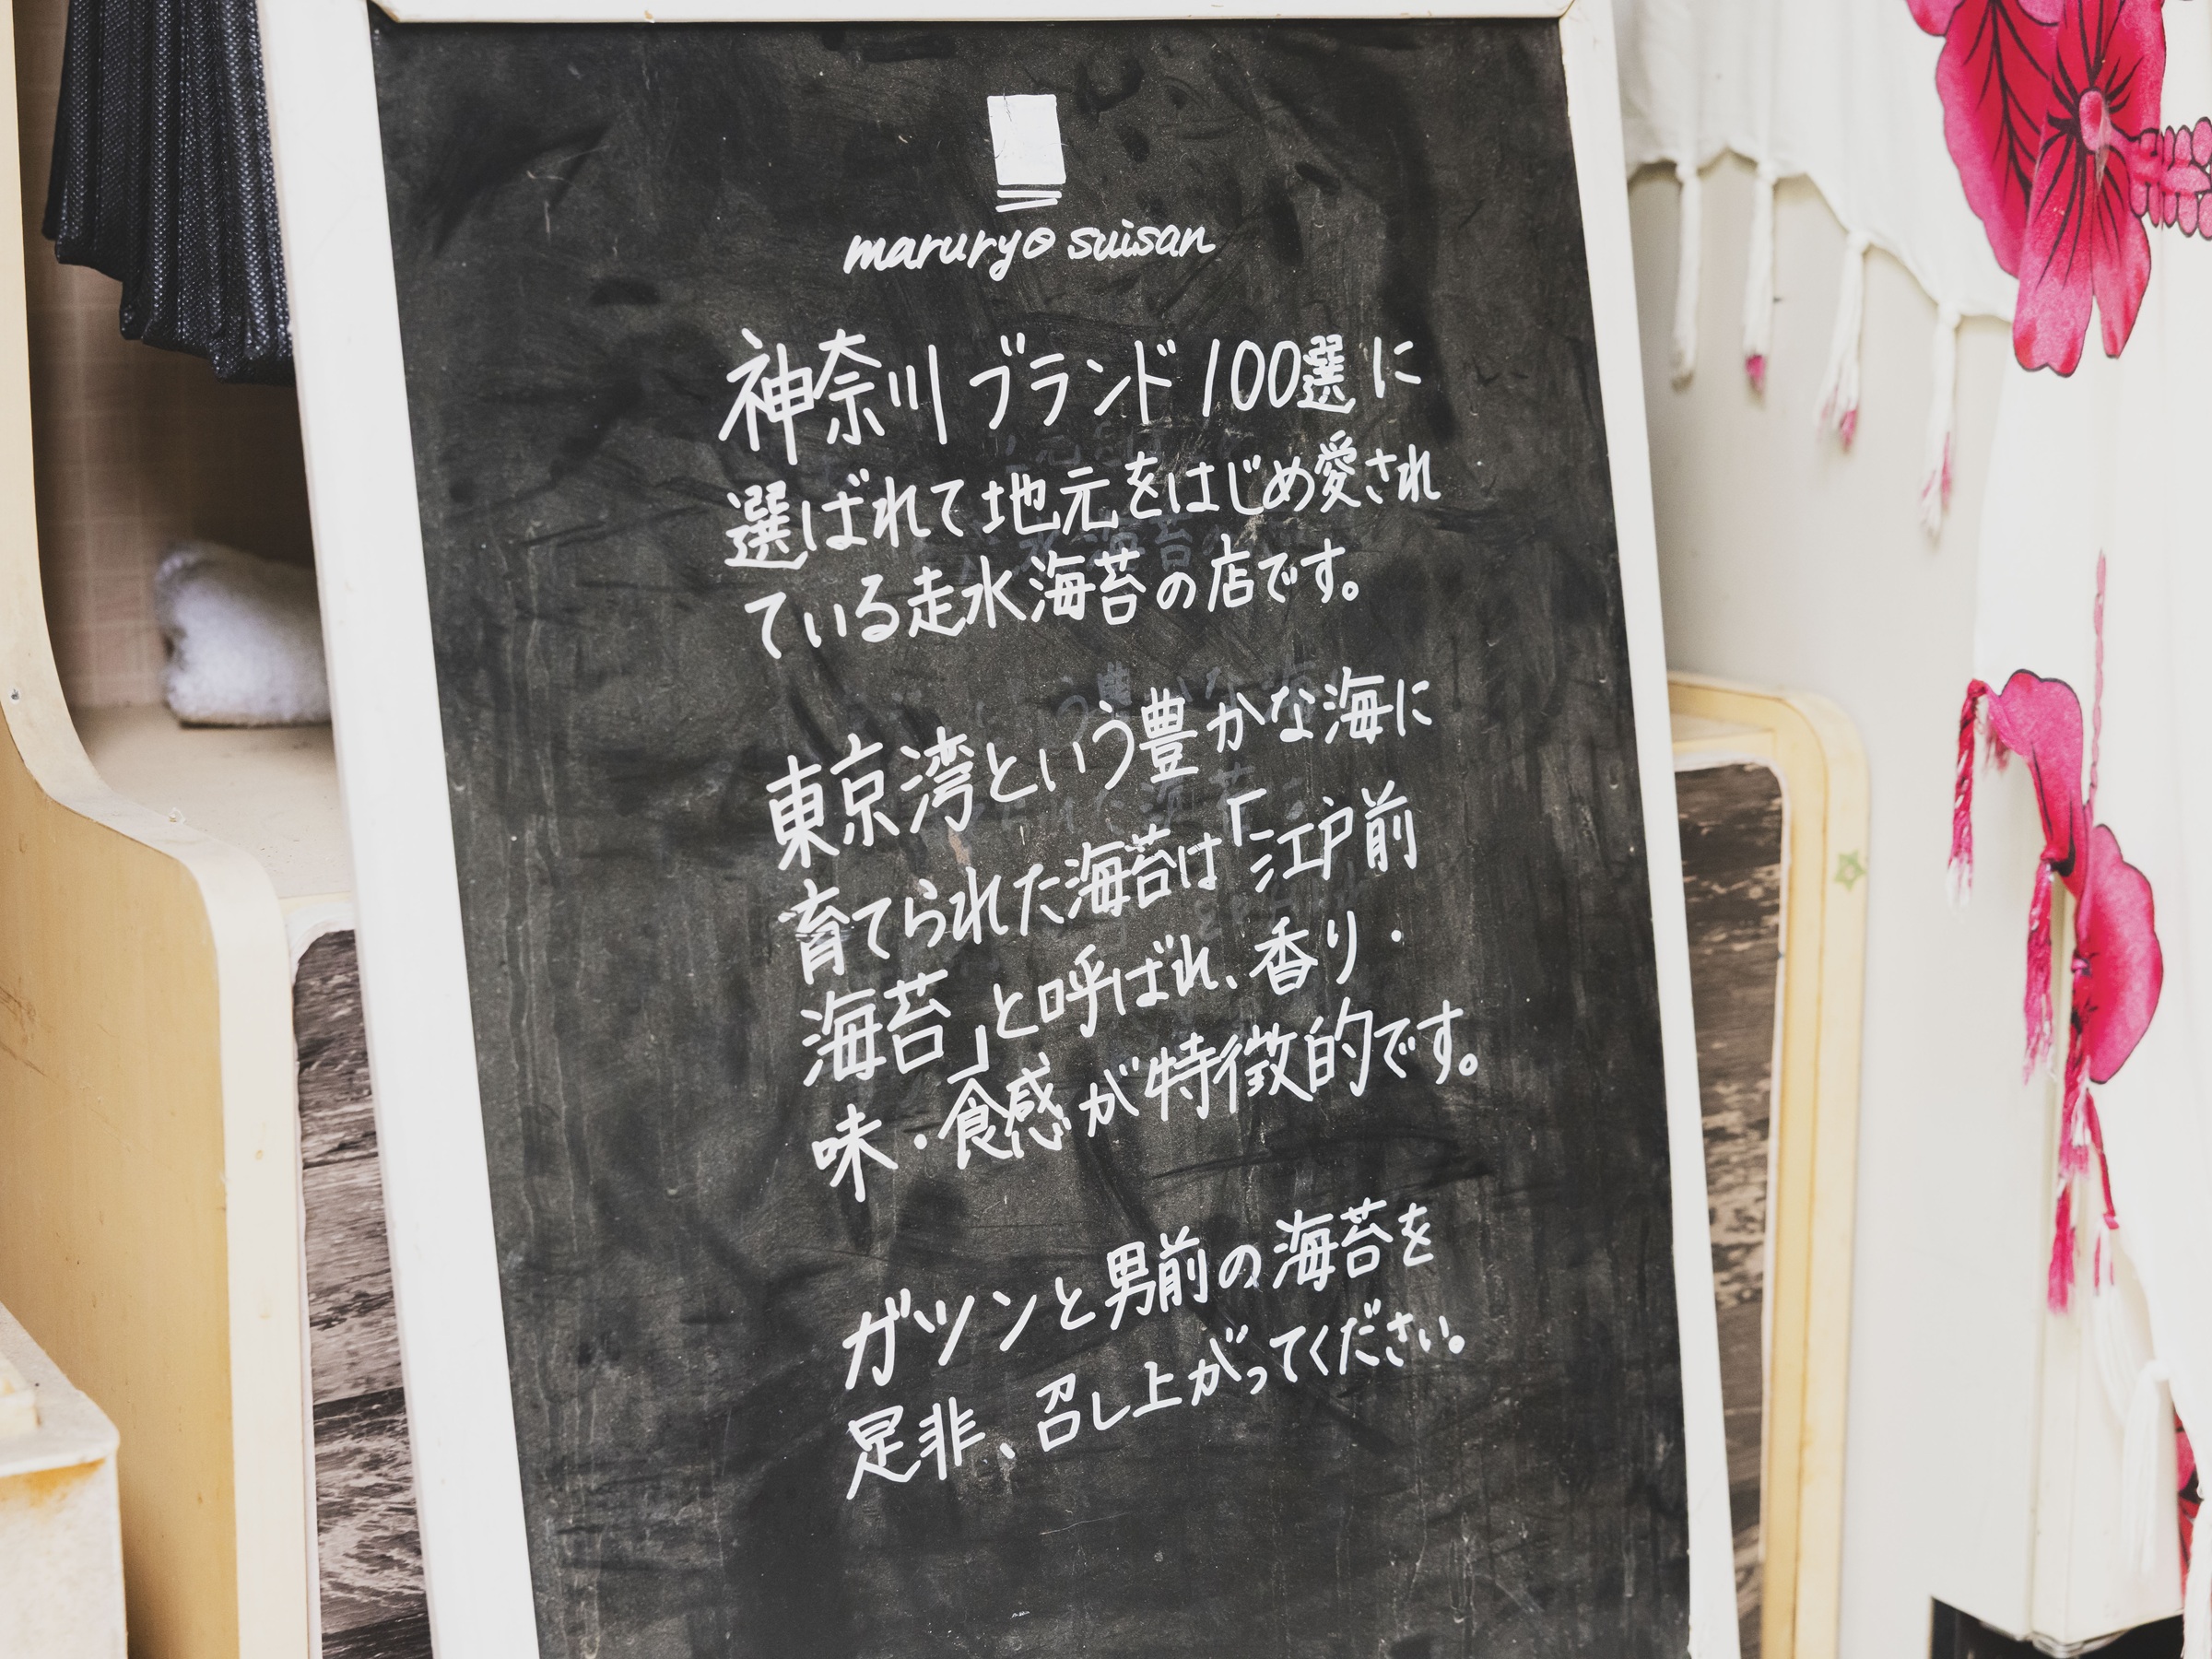 maruryo suisan
神奈川ブランド100選に
選ばれて地元をはじめ愛され
ている走水海苔の店です。
東京湾という豊かな海に
育てられた海苔は「江戸前
海苔」と呼ばれ、香り・
味・食感が特徴的です。
ガツンと男前の海苔を
是非、召し上がってください。